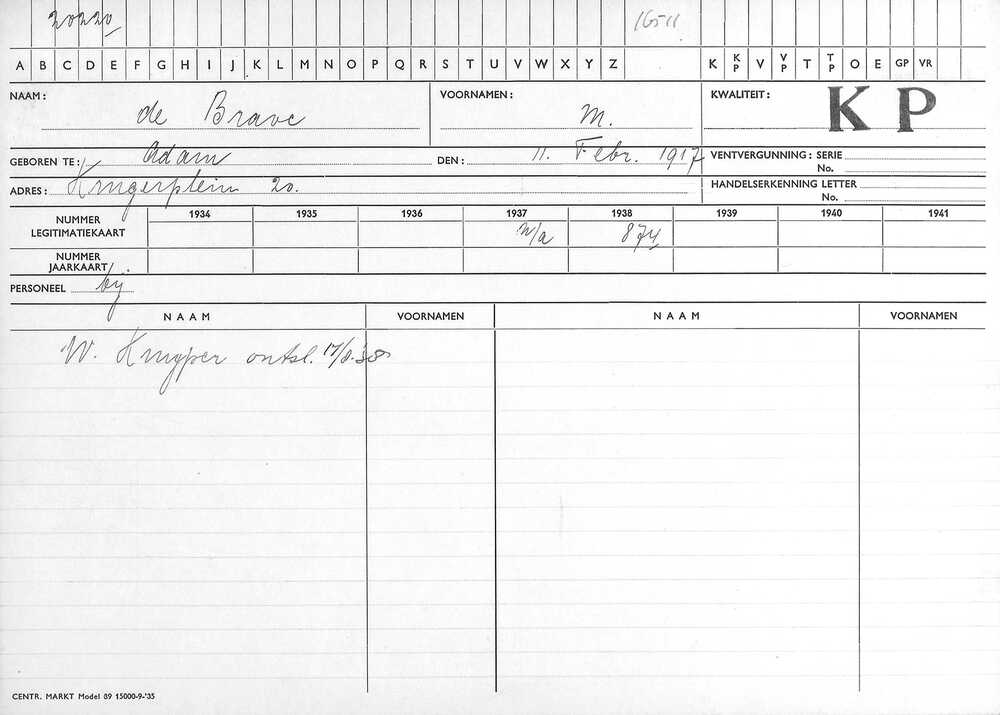 20220 16511
A B C D E F G H I J K L M N O P Q R S T U V W X Y Z K KP V VP T TP O E GP VR
NAAM: de Brave VOORNAMEN: M. KWALITEIT: KP
GEBOREN TE: Adam DEN: 11. Febr. 1917 VENTVERGUNNING: SERIE
No.
ADRES: Krugerplein 20. HANDELSERKENNING LETTER
No.
NUMMER LEGITIMATIEKAART 1934 1935 1936 1937 1938 1939 1940 1941
n/a 874
NUMMER JAARKAART
PERSONEEL bij
NAAM VOORNAMEN NAAM VOORNAMEN
W. Kruyper ontsl. 17/8.'38
CENTR. MARKT Model 89 15000-9-'35